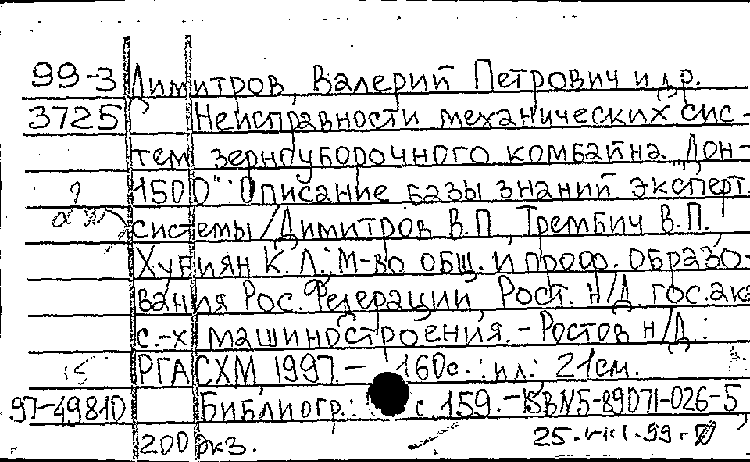 99-3 Димитров, Валерий Петрович и др.
3725 Неисправности механических сис-
тем зерноуборочного комбайна „Дон-
1500": Описание базы знаний эксперт.
системы / Димитров В.П., Трембич В.П.,
Хубиян К.Л.; М-во общ. и проф. образо-
вания Рос. Федерации, Рост. н/Д гос. ака
с.-х. машиностроения. - Ростов н/Д :
РГАСХМ, 1997. - 160с. : ил.; 21см.
97-49810 Библиогр.: с. 159. - ISBN 5-89071-026-5
200 экз. 25.VIII.99г.